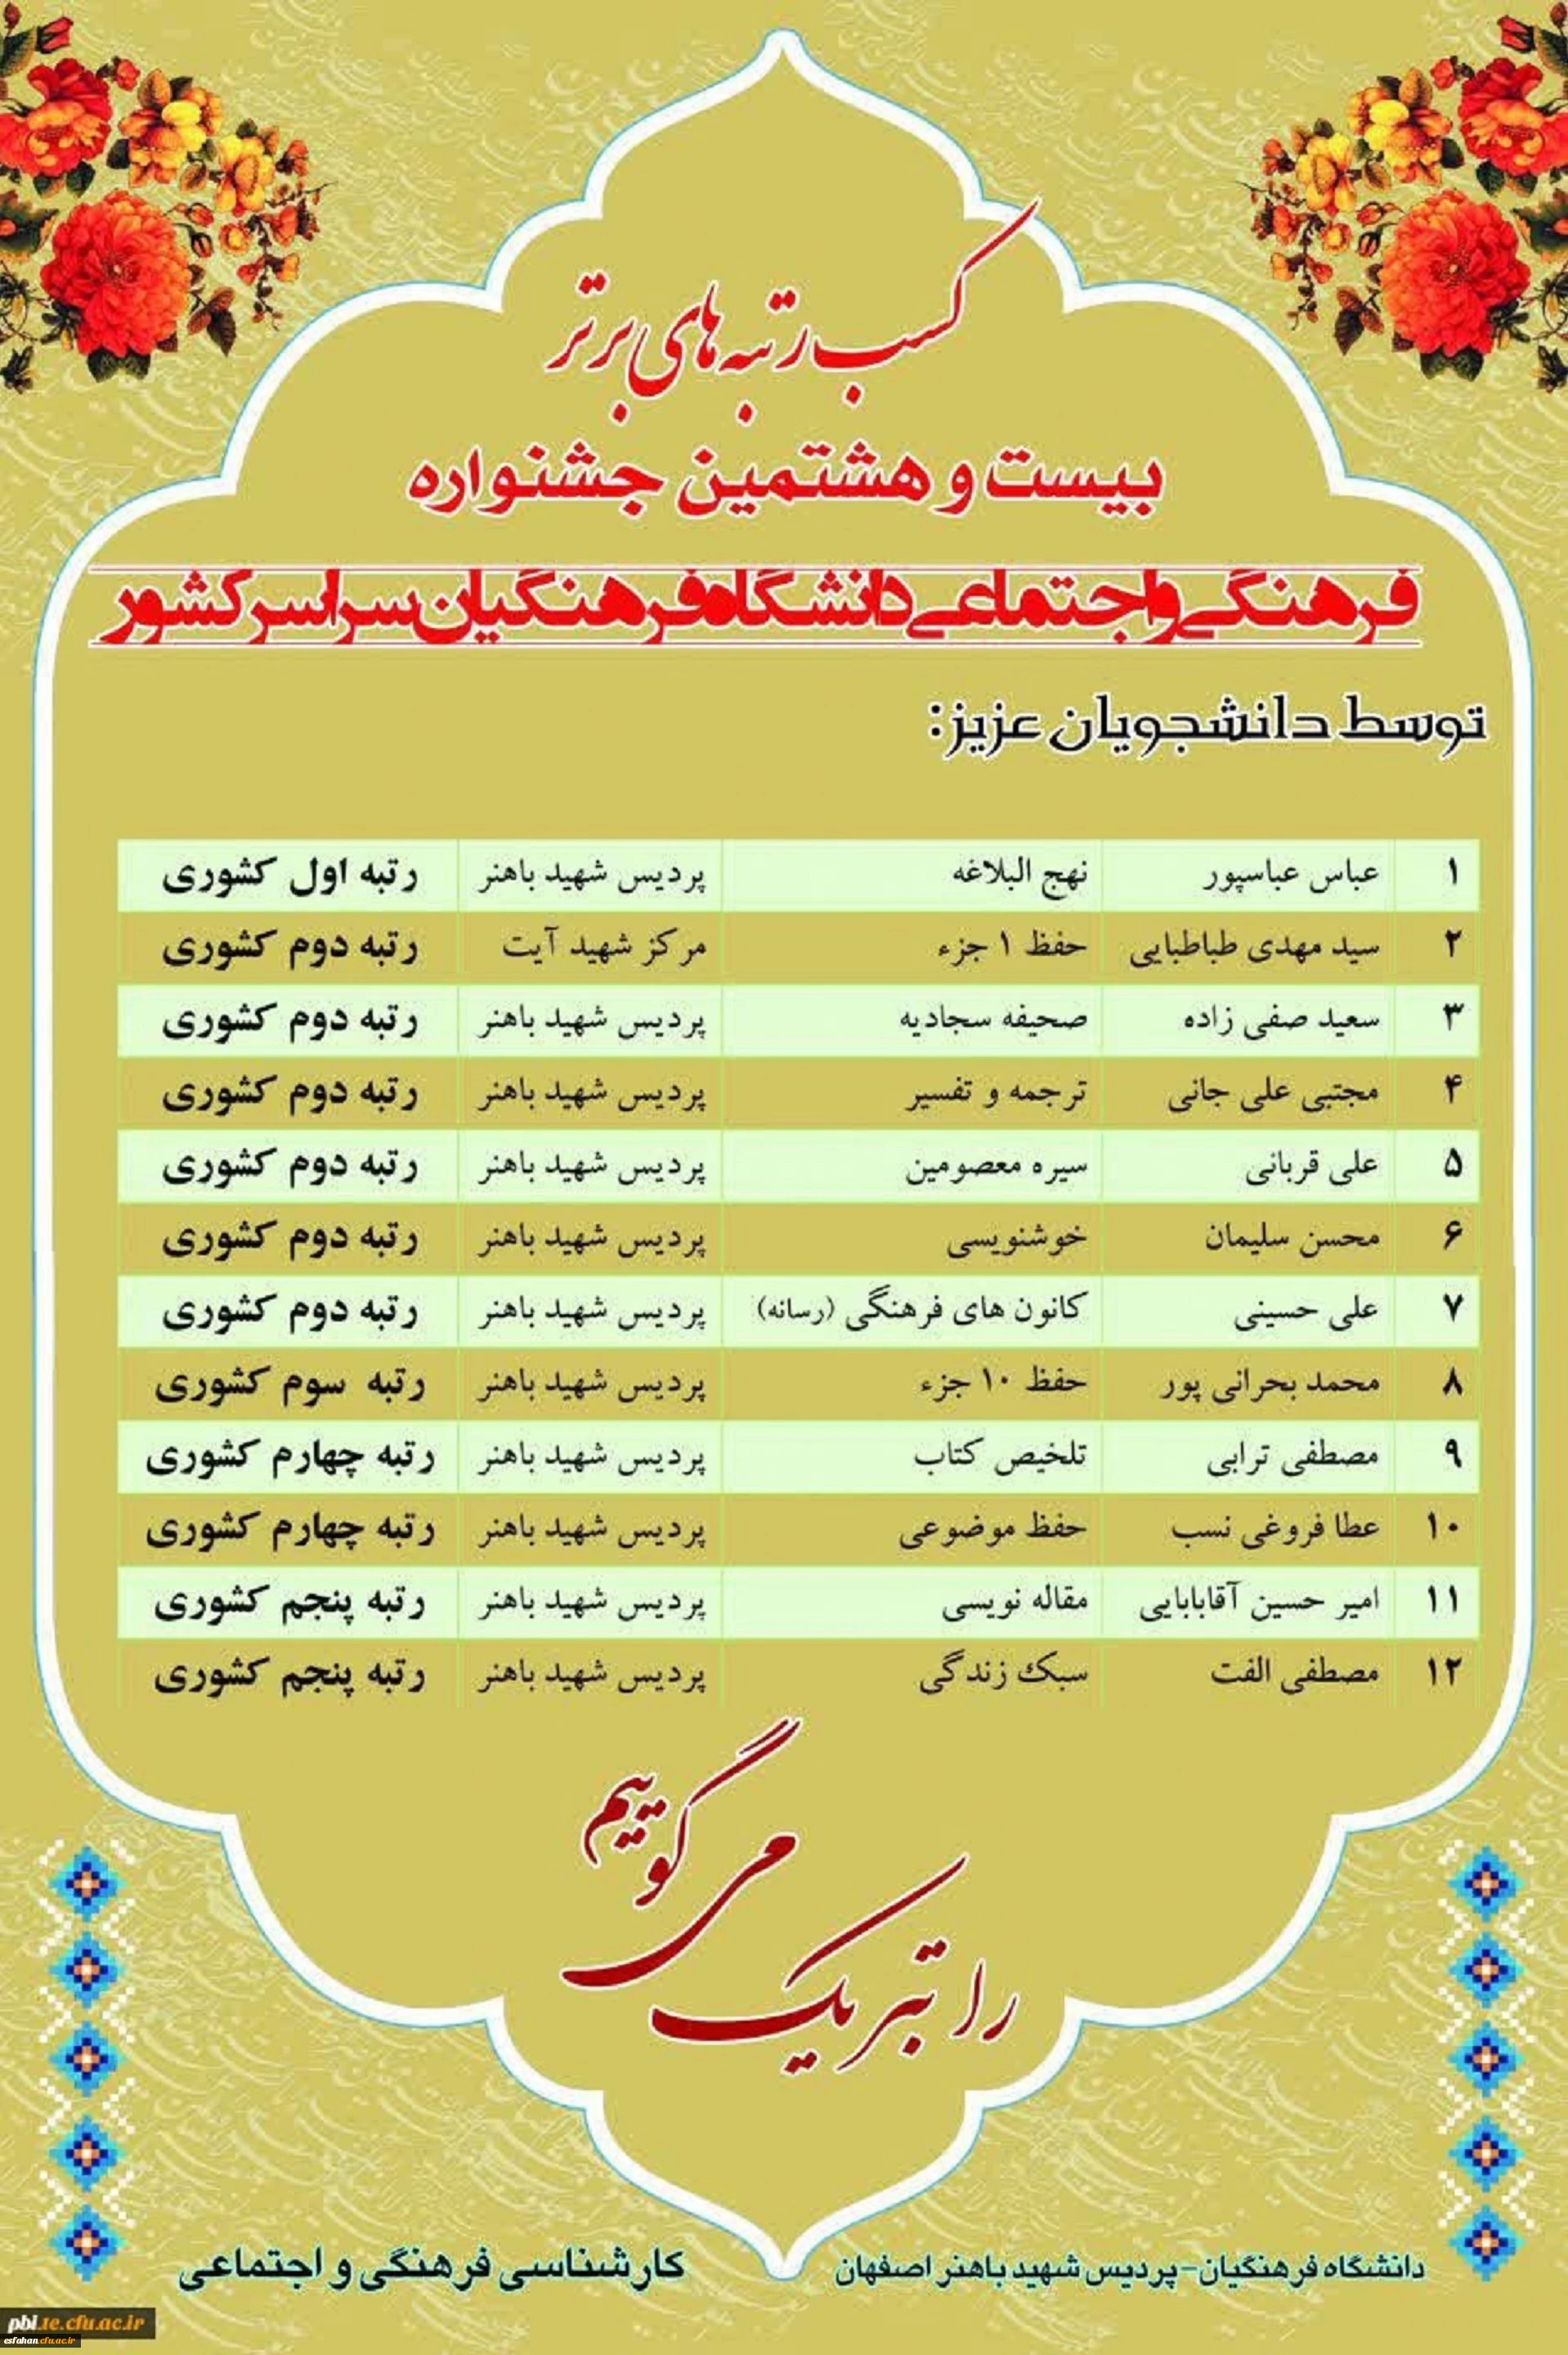 کسب رتبه های برتر
بیست و هشتمین جشنواره
فرهنگی و اجتماعی دانشگاه فرهنگیان سراسر کشور
توسط دانشجویان عزیز:
۱ عباس عباسپور نهج البلاغه پردیس شهید باهنر رتبه اول کشوری
۲ سید مهدی طباطبایی حفظ ۱ جزء مرکز شهید آیت رتبه دوم کشوری
۳ سعید صفی زاده صحیفه سجادیه پردیس شهید باهنر رتبه دوم کشوری
۴ مجتبی علی جانی ترجمه و تفسیر پردیس شهید باهنر رتبه دوم کشوری
۵ علی قربانی سیره معصومین پردیس شهید باهنر رتبه دوم کشوری
۶ محسن سلیمان خوشنویسی پردیس شهید باهنر رتبه دوم کشوری
۷ علی حسینی کانون های فرهنگی (رسانه) پردیس شهید باهنر رتبه دوم کشوری
۸ محمد بحرانی پور حفظ ۱۰ جزء پردیس شهید باهنر رتبه سوم کشوری
۹ مصطفی ترابی تلخیص کتاب پردیس شهید باهنر رتبه چهارم کشوری
۱۰ عطا فروغی نسب حفظ موضوعی پردیس شهید باهنر رتبه چهارم کشوری
۱۱ امیر حسین آقابابایی مقاله نویسی پردیس شهید باهنر رتبه پنجم کشوری
۱۲ مصطفی الفت سبک زندگی پردیس شهید باهنر رتبه پنجم کشوری
را تبریک می گوییم
دانشگاه فرهنگیان-پردیس شهید باهنر اصفهان کارشناسی فرهنگی و اجتماعی
pbi.te.cfu.ac.ir
esfahan.cfu.ac.ir